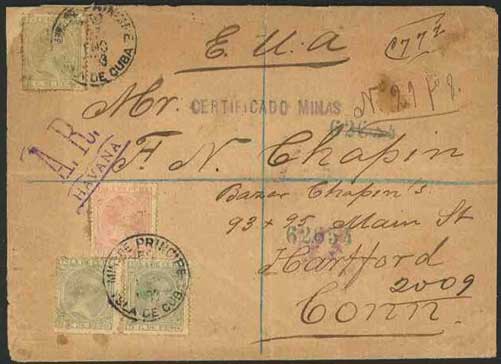 E. U. A
CERTIFICADO MINAS
Mr.
A. R.
HAVANA
F. N. Chapin
Bazar Chapin's
93 + 95 Main St
62654
Hartford
2009
Conn
PRINCIPE
ISLA DE CUBA
MINAS DE PRINCIPE
ISLA DE CUBA